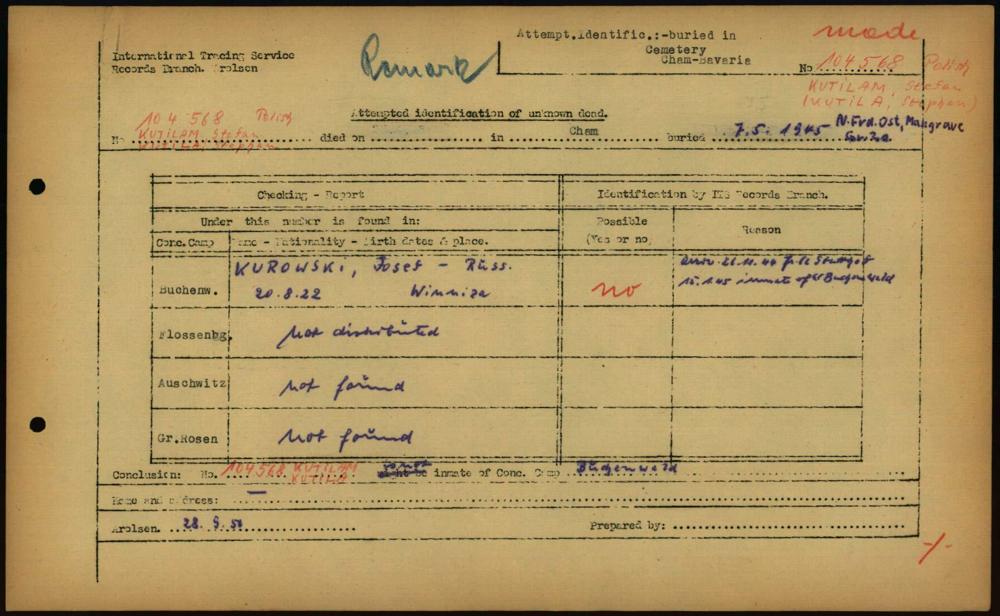 Attempt.Identific.:-buried in
Cemetery
Cham-Bavaria
made
International Tracing Service
Records Branch. Arolsen
Remark
No 104568 Polish
KUTILAM, Stefan
(KUTILA, Stephan)
Attempted identification of unknown dead.
No 104 568 Polish
KUTILAM, Stefan
KUTILA, Stephan
died on in Cham buried 7.5.1945 N.Frd.Ost, Massgrave
Checking - Report
Identification by ITS Records Branch.
Under this number is found in:
Possible
(Yes or no)
Reason
Conc.Camp
Name - Nationality - Birth dates & place.
Buchenw.
KUROWSKI, Josef - Russ.
20.8.22 Winniza
no
inmate of Buchenwald
Flossenbg.
not distributed
Auschwitz
not found
Gr.Rosen
not found
Conclusion: No. 104568 KUTILAM
KUTILA
might be inmate of Conc. Camp Buchenwald
Name and address: —
Arolsen. 28.9.50
Prepared by:
-/-